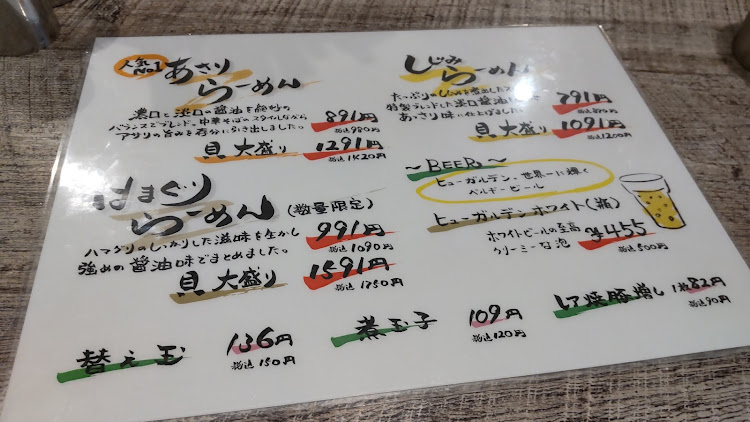 人気No1
あさりらーめん
濃口と淡口の醤油を絶妙の
バランスでブレンド。中華そばのスタイルながら
アサリの旨みを存分に引き出しました。
891円
税込980円
貝大盛り 1291円
税込1420円
はまぐりらーめん(数量限定)
ハマグリのしっかりした滋味を生かし
強めの醤油味でまとめました。
991円
税込1090円
貝大盛り 1591円
税込1750円
しじみらーめん
たっぷりのしじみを煮出した
特製ブレンドした淡口醤油
あっさり味に仕上げました。
791円
貝大盛り 1091円
税込1200円
～BEER～
ヒューガルデン。世界一に輝く
ベルギービール
ヒューガルデンホワイト(瓶)
ホワイトビールの至高
クリーミーな泡
¥455
税込500円
替え玉 136円
税込150円
煮玉子 109円
税込120円
レア焼豚増し 1枚82円
税込90円